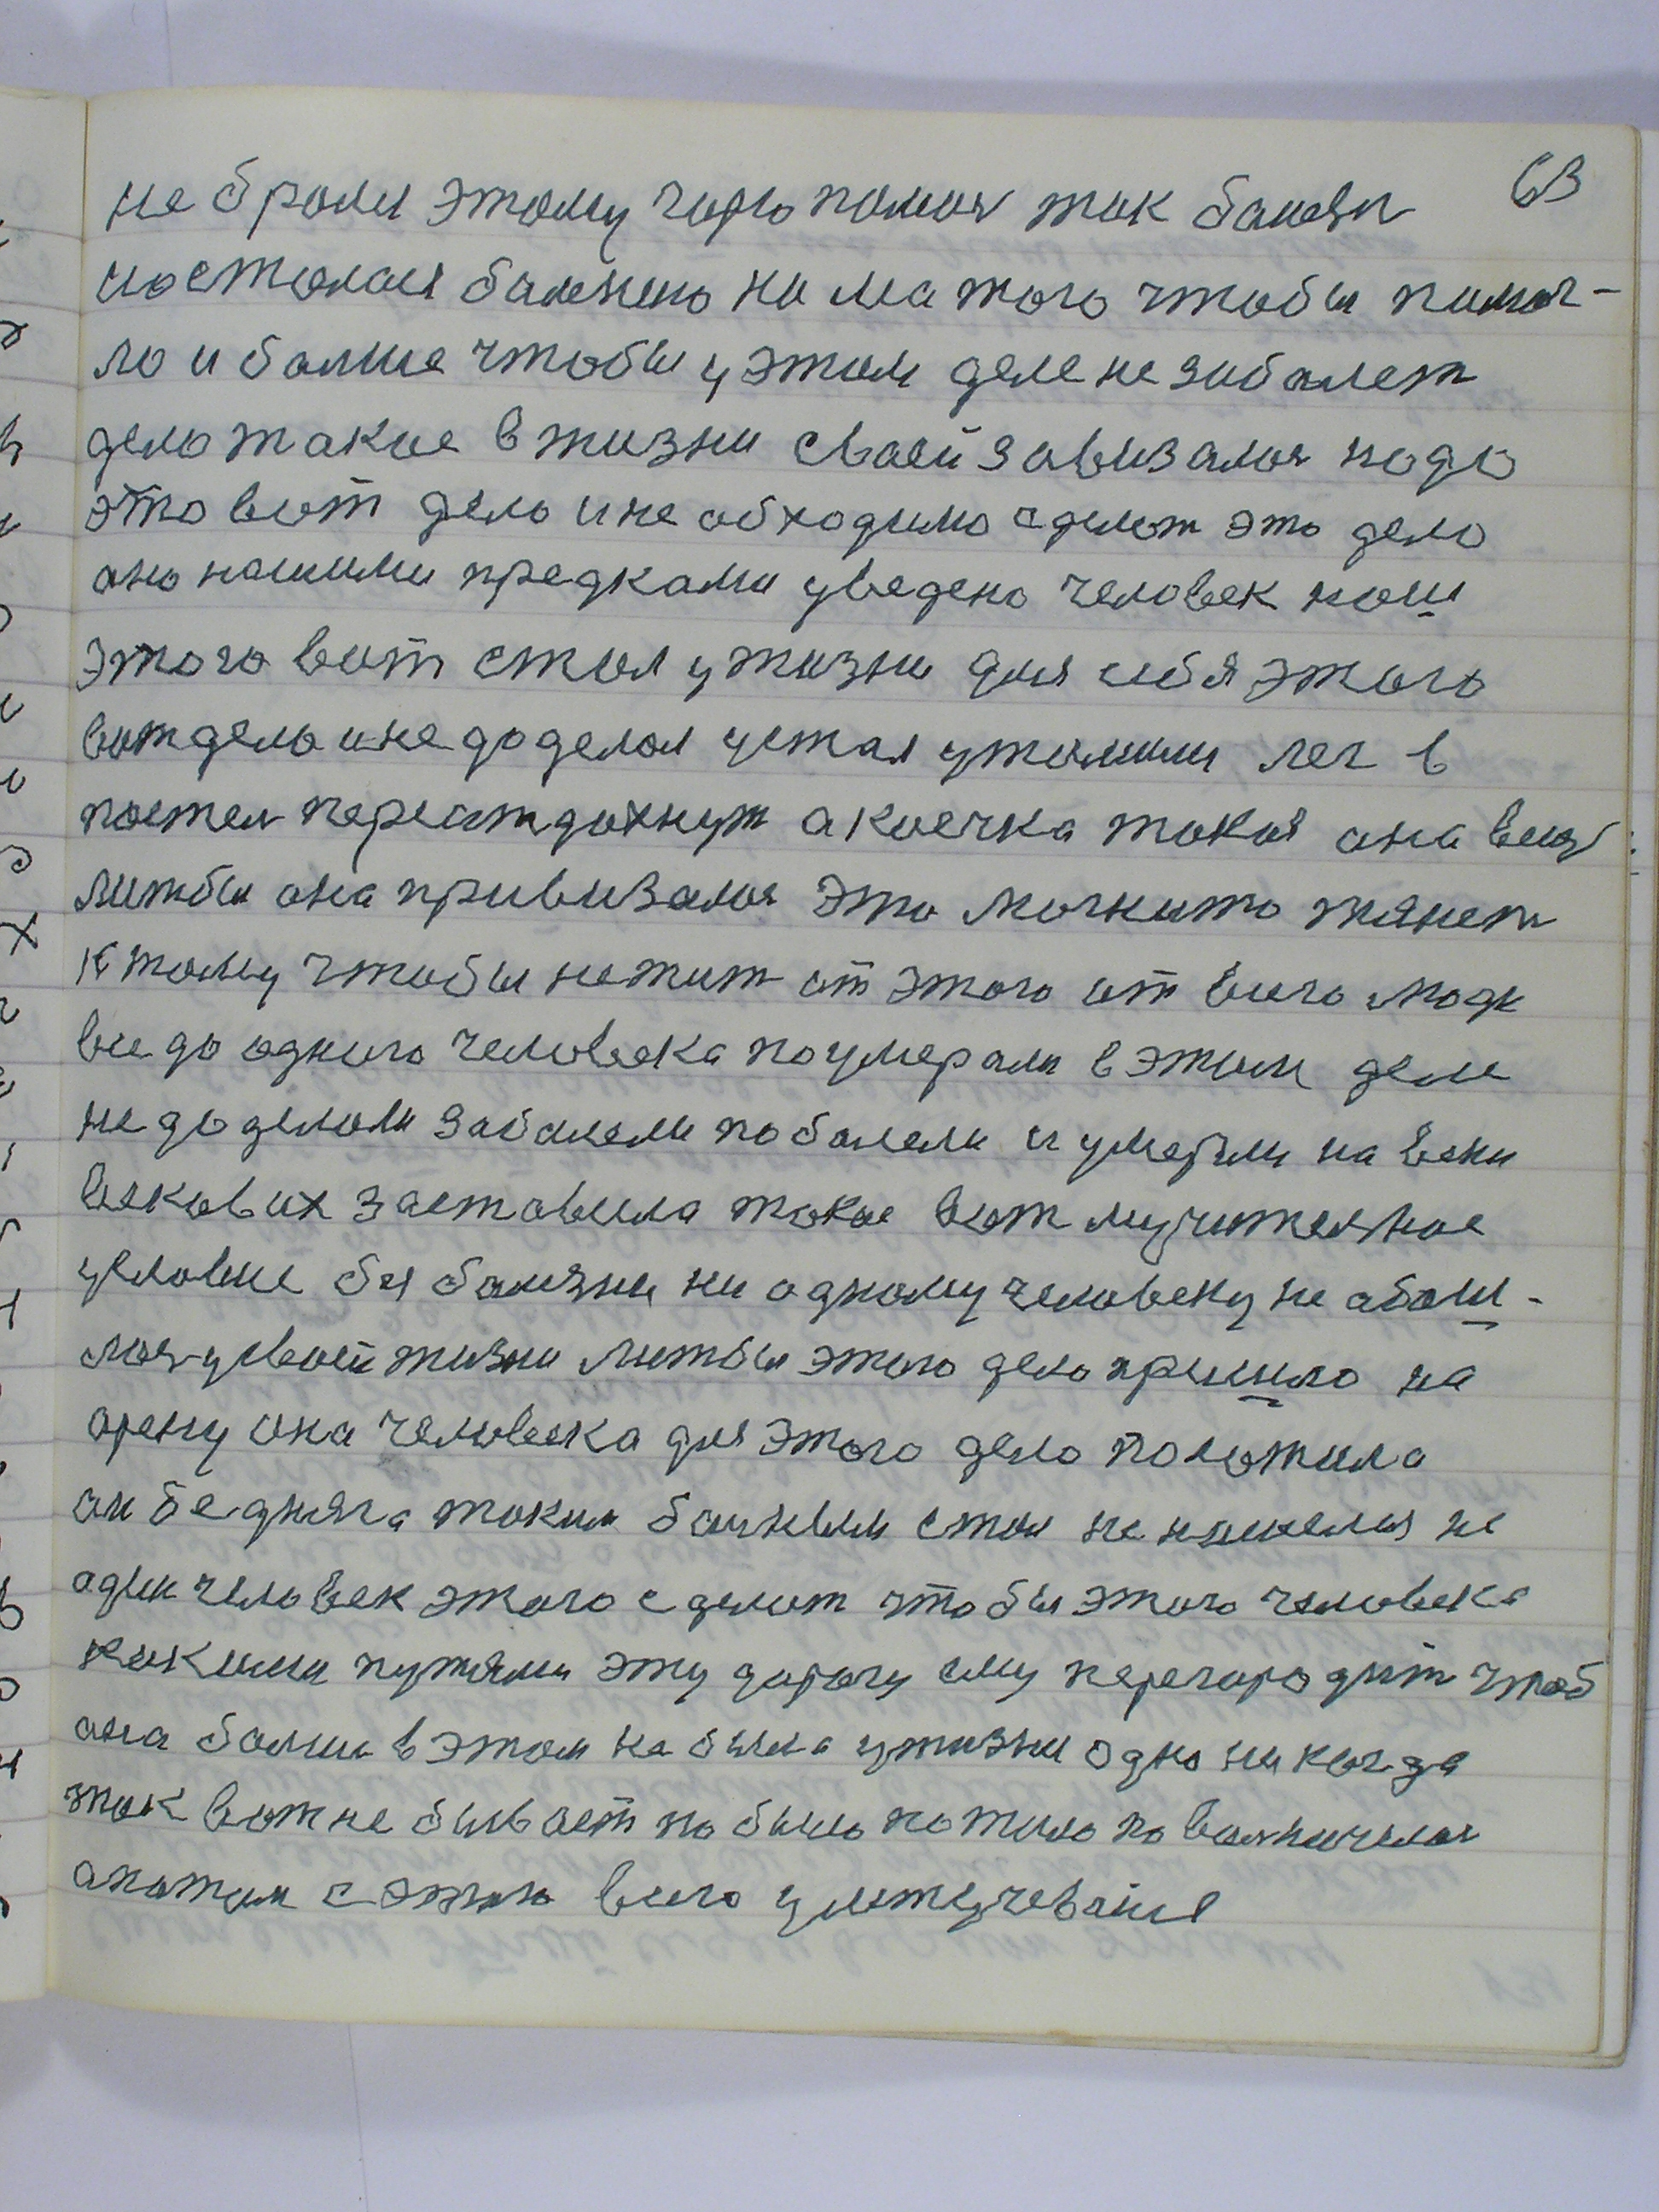 63
не брали этому горю помоч так болезн
и осталася болнено нима того чтобы помог-
ло и болше чтобы у этом деле не заболет
дело такое в жизни своей завизалос надо
это вот дело и не обходимо сделат это дело
оно нашими предками уведено человек наш
этого вот стал у жизни для себя этого
вот дело и не доделал устал утомили лег в
постел переатдохнут а коечка такая она всиг
литбы она привизалос это магнито тянет
к тому чтобы не жит от этого от всиго люди
все до одного человека поумерали в этим деле
не доделали заболели поболели и умерли на веки
веков их заставила такое вот мучителное
условие без болезни ни одному человеку не обош-
лос у своей жизни литбы этого дело пришло на
арену она человека для этого дело положила
он бедняга таким болнеым стал не нашелся не
один человек этого сделат чтобы этого человека
какими путями эту дорогу ему перегородит чтоб
она болше в этом не была у жизни одно никогда
так вот не бывает побыло пожило поволнчилос
а потом с этого всиго улетучеваися